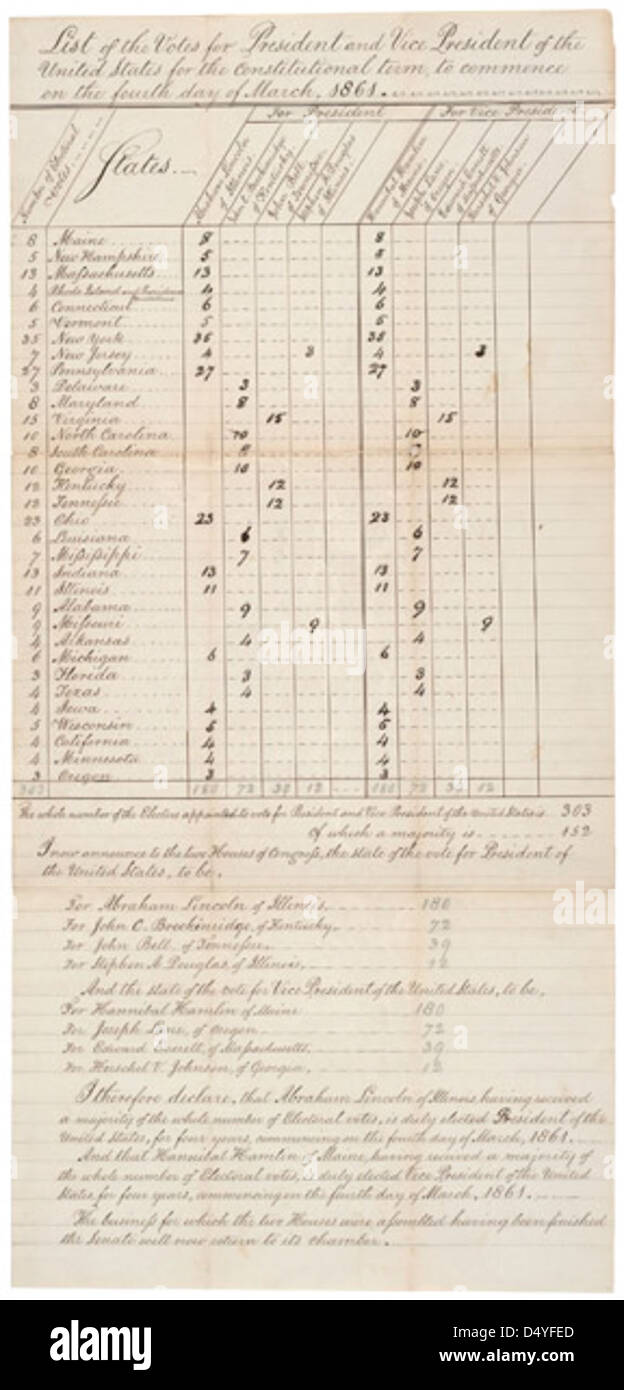 List of the Votes for President and Vice President of the
United States for the constitutional term, to commence
on the fourth day of March, 1861.
For President For Vice Presid
Number of Electoral Votes States. Abraham Lincoln of Illinois. of Kentucky. John Bell of Stephen A. Douglas of Illinois. Hannibal Hamlin of Maine. Joseph Lane of Oregon. Edward Everett of Herschel V. Johnson of Georgia.
8 Maine 8 8
5 New Hampshire 5 5
13 Massachusetts 13 13
4 Rhode Island and Providence 4 4
6 Connecticut 6 6
5 Vermont 5 5
35 New York 35 35
7 New Jersey 4 3 4 3
27 Pennsylvania 27 27
3 Delaware 3 3
8 Maryland 8 8
15 Virginia 15 15
10 North Carolina 10 10
8 South Carolina 8
10 Georgia 10 10
12 Kentucky 12 12
12 Tennessee 12 12
23 Ohio 23 23
6 Louisiana 6 6
7 Mississippi 7 7
13 Indiana 13 13
11 Illinois 11 11
9 Alabama 9 9
9 Missouri 9 9
4 Arkansas 4 4
6 Michigan 6 6
3 Florida 3 3
4 Texas 4 4
4 Iowa 4 4
5 Wisconsin 5 5
4 California 4 4
4 Minnesota 4 4
3 Oregon 3 3
303 180 72 39 12 180 72 39 12
The whole number of the Electors appointed to vote for President and Vice President of the United States is 303
Of which a majority is 152
I now announce to the two Houses of Congress, the state of the vote for President of
the United States, to be,
For Abraham Lincoln of Illinois, 180
For John C. Breckinridge, of Kentucky 72
For John Bell, of Tennessee 39
For Stephen A. Douglas, of Illinois, 12
And the state of the vote for Vice President of the United States, to be,
For Hannibal Hamlin of Maine 180
For Joseph Lane, of Oregon 72
For Edward Everett, of Massachusetts. 39
For Herschel V. Johnson, of Georgia, 12
I therefore declare, that Abraham Lincoln of Illinois, having received
a majority of the whole number of Electoral votes, is duly elected President of the
United States, for four years, commencing on the fourth day of March, 1861.
And that Hannibal Hamlin, of Maine, having received a majority of
the whole number of Electoral votes, is duly elected Vice President of the United
States for four years, commencing on the fourth day of March, 1861.
The business for which the two Houses were assembled having been finished
the Senate will now return to its chamber.
alamy
Image ID: D4YFED
www.alamy.com